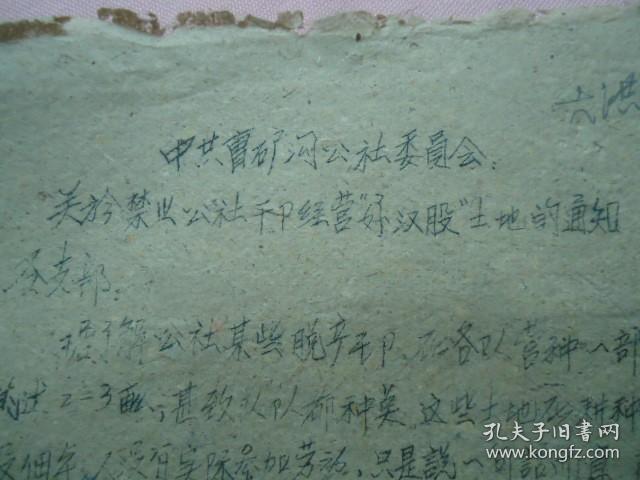 六洪
中共曹矿沟公社委员会:
关於禁止公社干卩经营“好汉股”土地的通知
各支部.
据了解公社某些脱产干卩、在各队营种一部
2=3亩,甚致队队都种芙,这些土地在耕种
没有实际参加劳动,只是説一句話
孔夫子旧书网
www.kongfz.com